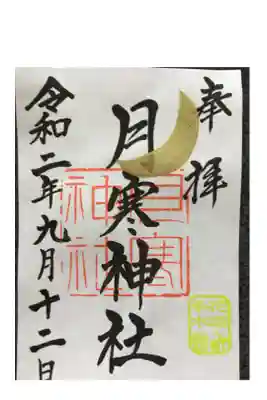 奉拝
月寒神社
月寒神社
令和二年九月十二日